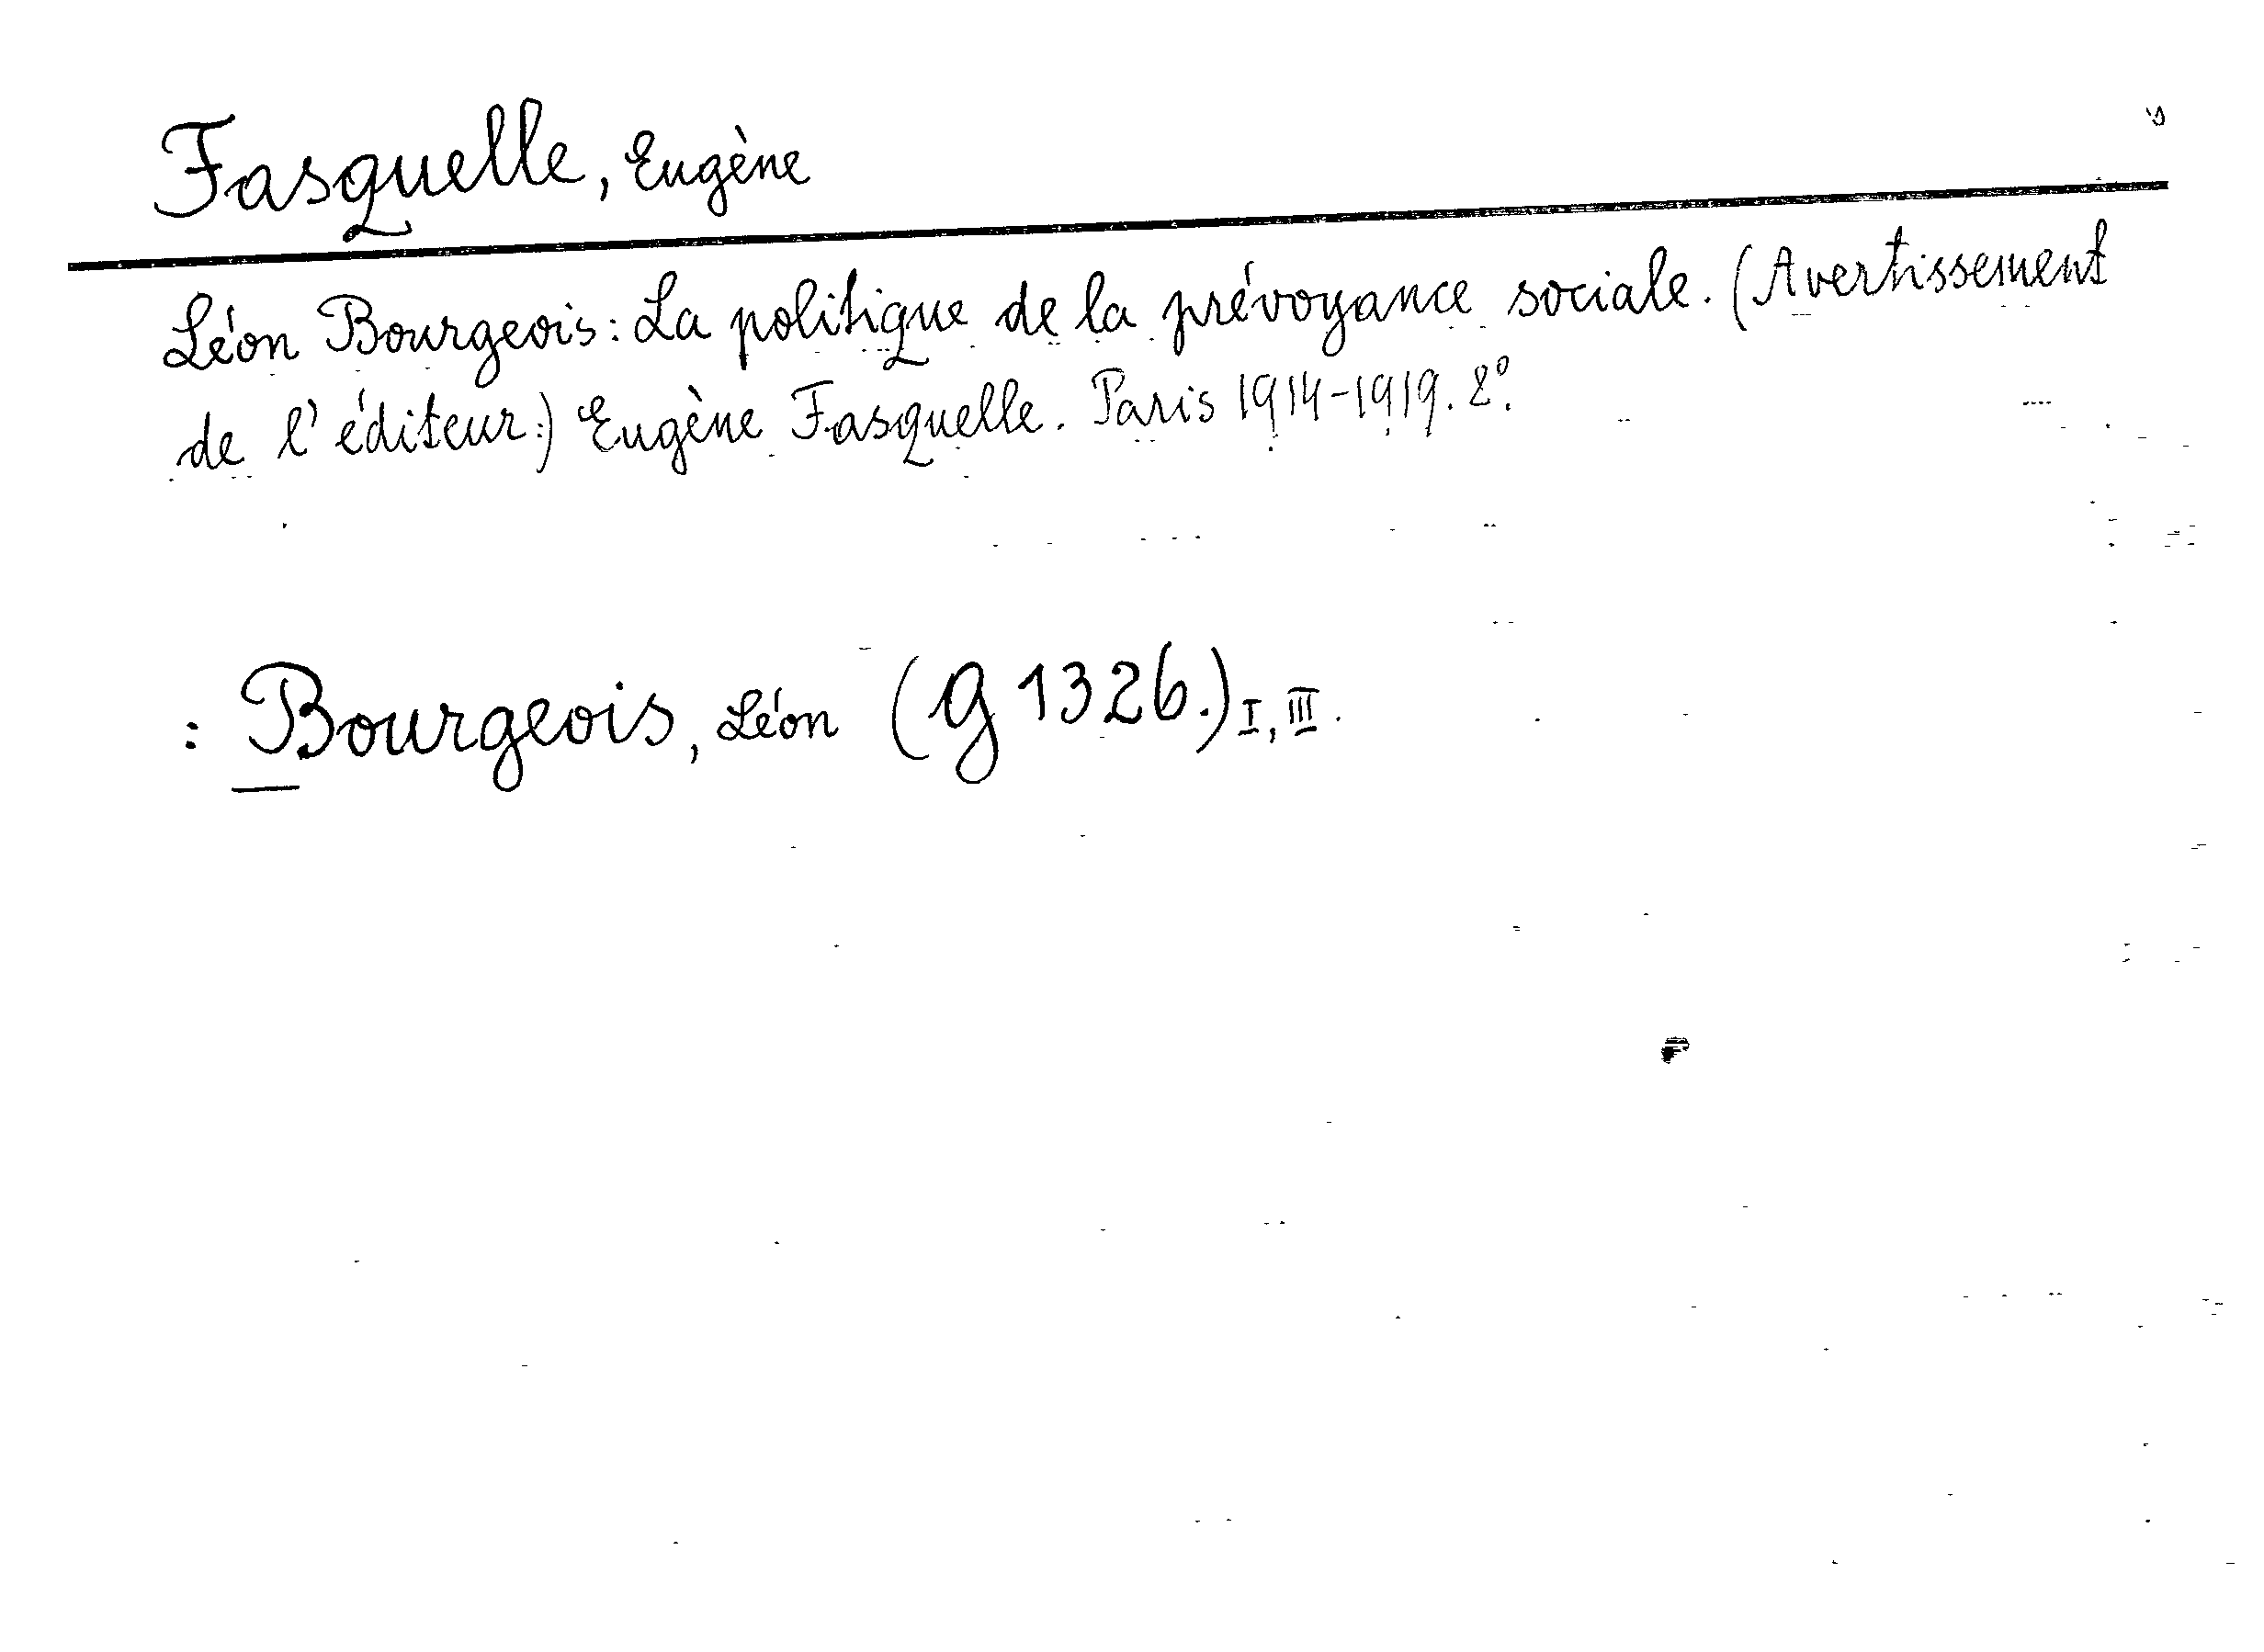 Fasquelle, Eugène
Léon Bourgeois: La politique de la prévoyance sociale. (Avertissement
de l'éditeur:) Eugène Fasquelle. Paris 1914-1919. 8°.
: Bourgeois, Léon (G 1326.) I, III.